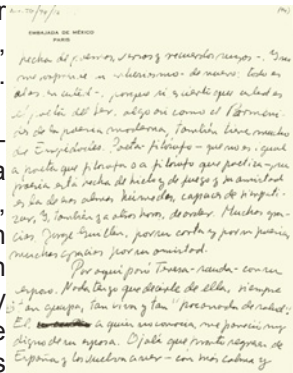 EMBAJADA DE MÉXICO
PARIS
hecha de poemas, versos y recuerdos suyos -. Y no
me sorprende su
en usted -, porque si es cierto que usted es
el poeta del Ser, algo así como el Parméni-
des de la poesía moderna, también tiene mucho
de Empédocles. Poeta filósofo - que no es igual
a poeta que filosofa o a filósofo que poetiza - su
poesía está hecha de hielo y de fuego y su amistad
es la de dos almas húmedas, capaces de simpati-
zar. Y, también y a otras horas, de arder. Muchas gra-
cias, Jorge Guillén, por su carta y por su poesía,
muchas gracias por su amistad.
Por aquí pasó Teresa - rauda - con su
esposo. Nada tengo que decirle de ella, siempre
tan guapa, tan viva y tan "poco nada de salud".
El, a quien no conocía, me pareció muy
digno de su esposa. Ojalá que pronto regresen de
España y los vuelva a ver - con más calma y